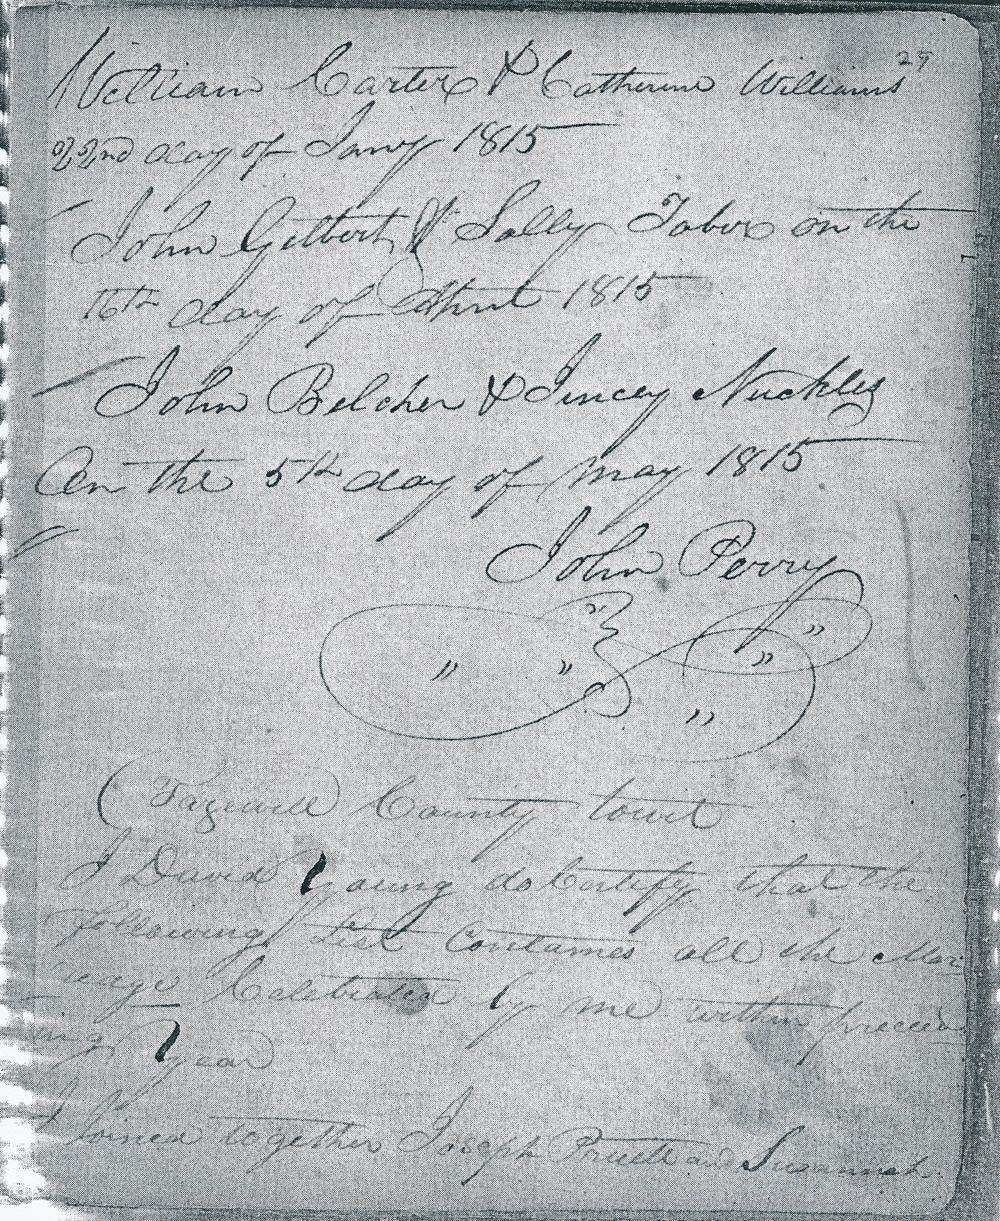 29
William Carter & Catherine Williams
22nd day of Jany 1815
John Gilbert & Sally Tabor on the
16th day of April 1815
John Belcher & Jincey Nuckles
On the 5th day of May 1815
John Perry
" " " " " "
Tazewell County towit
I David Young do Certify that the
following List Containes all the Mar
reage Celebrated by me within preceed
ing year
I Joined together Joseph Pruett and Susannah